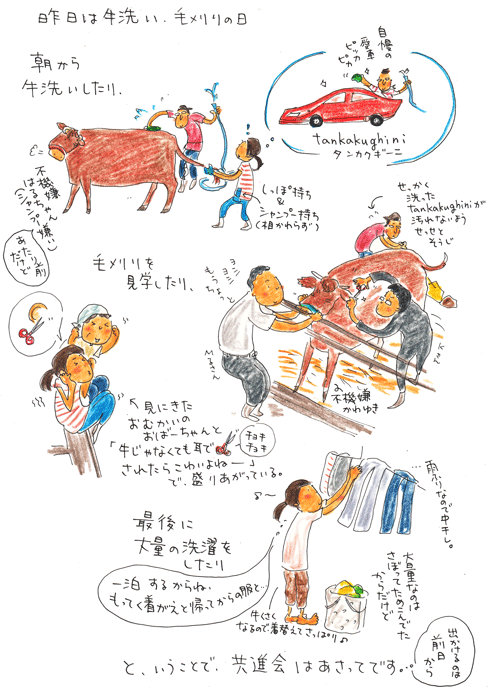 昨日は牛洗い、毛メリリの日
朝から
牛洗いしたり、
自慢の
愛車
ピッカ
ピカ
tankakughini
タンカクギーニ
不機嫌
はるちゃん
(シャンプー嫌い)
あたり前
だけど
しっぽ持ち
&
シャンプー持ち
(相かわらず)
せっかく
洗った
tankakughiniが
汚れないよう
せっせと
そうじ
毛メリリを
見学したり、
ヨシヨシ
もうちょっと
Mるさん
不機嫌
かわゆき
見にきた
おむかいの
おばーちゃんと
「牛じゃなくても耳で
チョキ
チョキ
されたらこわいよねー」
で、盛りあがっている。
雨ふりなので中干し。
最後に
大量の洗濯を
したり
一泊するからね、
もってく着がえと帰ってからの服と…
大量なのは
さぼってためこんでた
からだけど
牛くさく
なるので着替えてさっぱり♪
出かけるのは
前日
から
と、いうことで、共進会はあさってです…